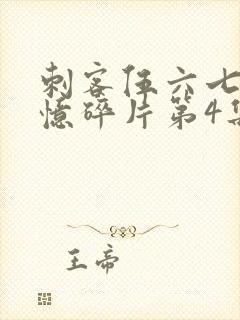 刺客伍六七
憶碎片第4集
王帝